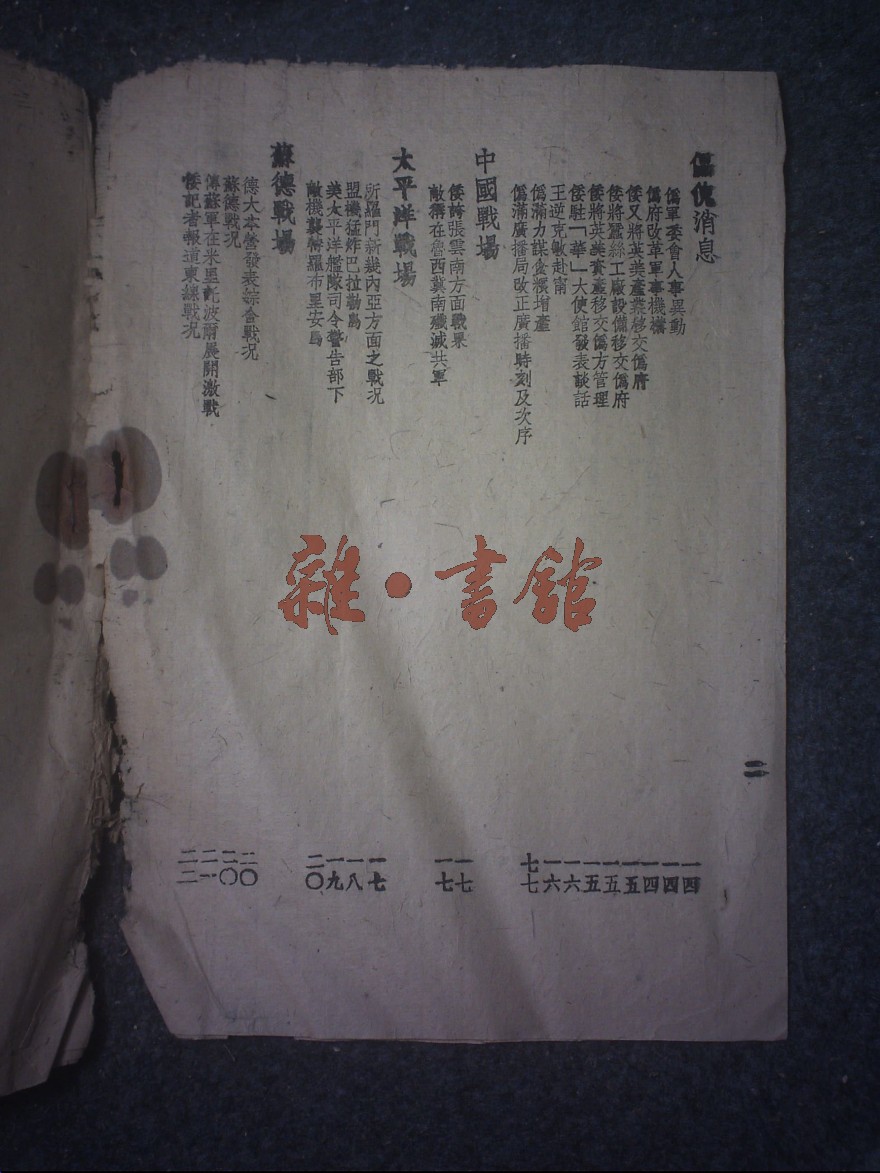 僞仇消息
僞軍委會人事異動 一四
僞府改革軍事機構 一四
倭又將英美產業移交僞府 一四
倭將蠶絲工廠設備移交僞府 一五
倭將英美資產移交僞方管理 一五
倭駐「華」大使館發表談話 一五
王逆克敏赴甯 一六
僞滿力謀食糧增產 一六
僞滿廣播局改正廣播時刻及次序 七七
中國戰場
倭誇張雲南方面戰果 一七
敵稱在魯西冀南殲滅共軍 一七
太平洋戰場
所羅門新幾內亞方面之戰況 一七
盟機猛炸巴拉勒島 一八
美太平洋艦隊司令警告部下 一九
敵機襲特羅布里安島 二〇
蘇德戰場
德大本營發表綜合戰況 二〇
蘇德戰況 二〇
傳蘇軍在米里託波爾展開激戰 二一
倭記者報道東綫戰況 二二
二
雜·書館